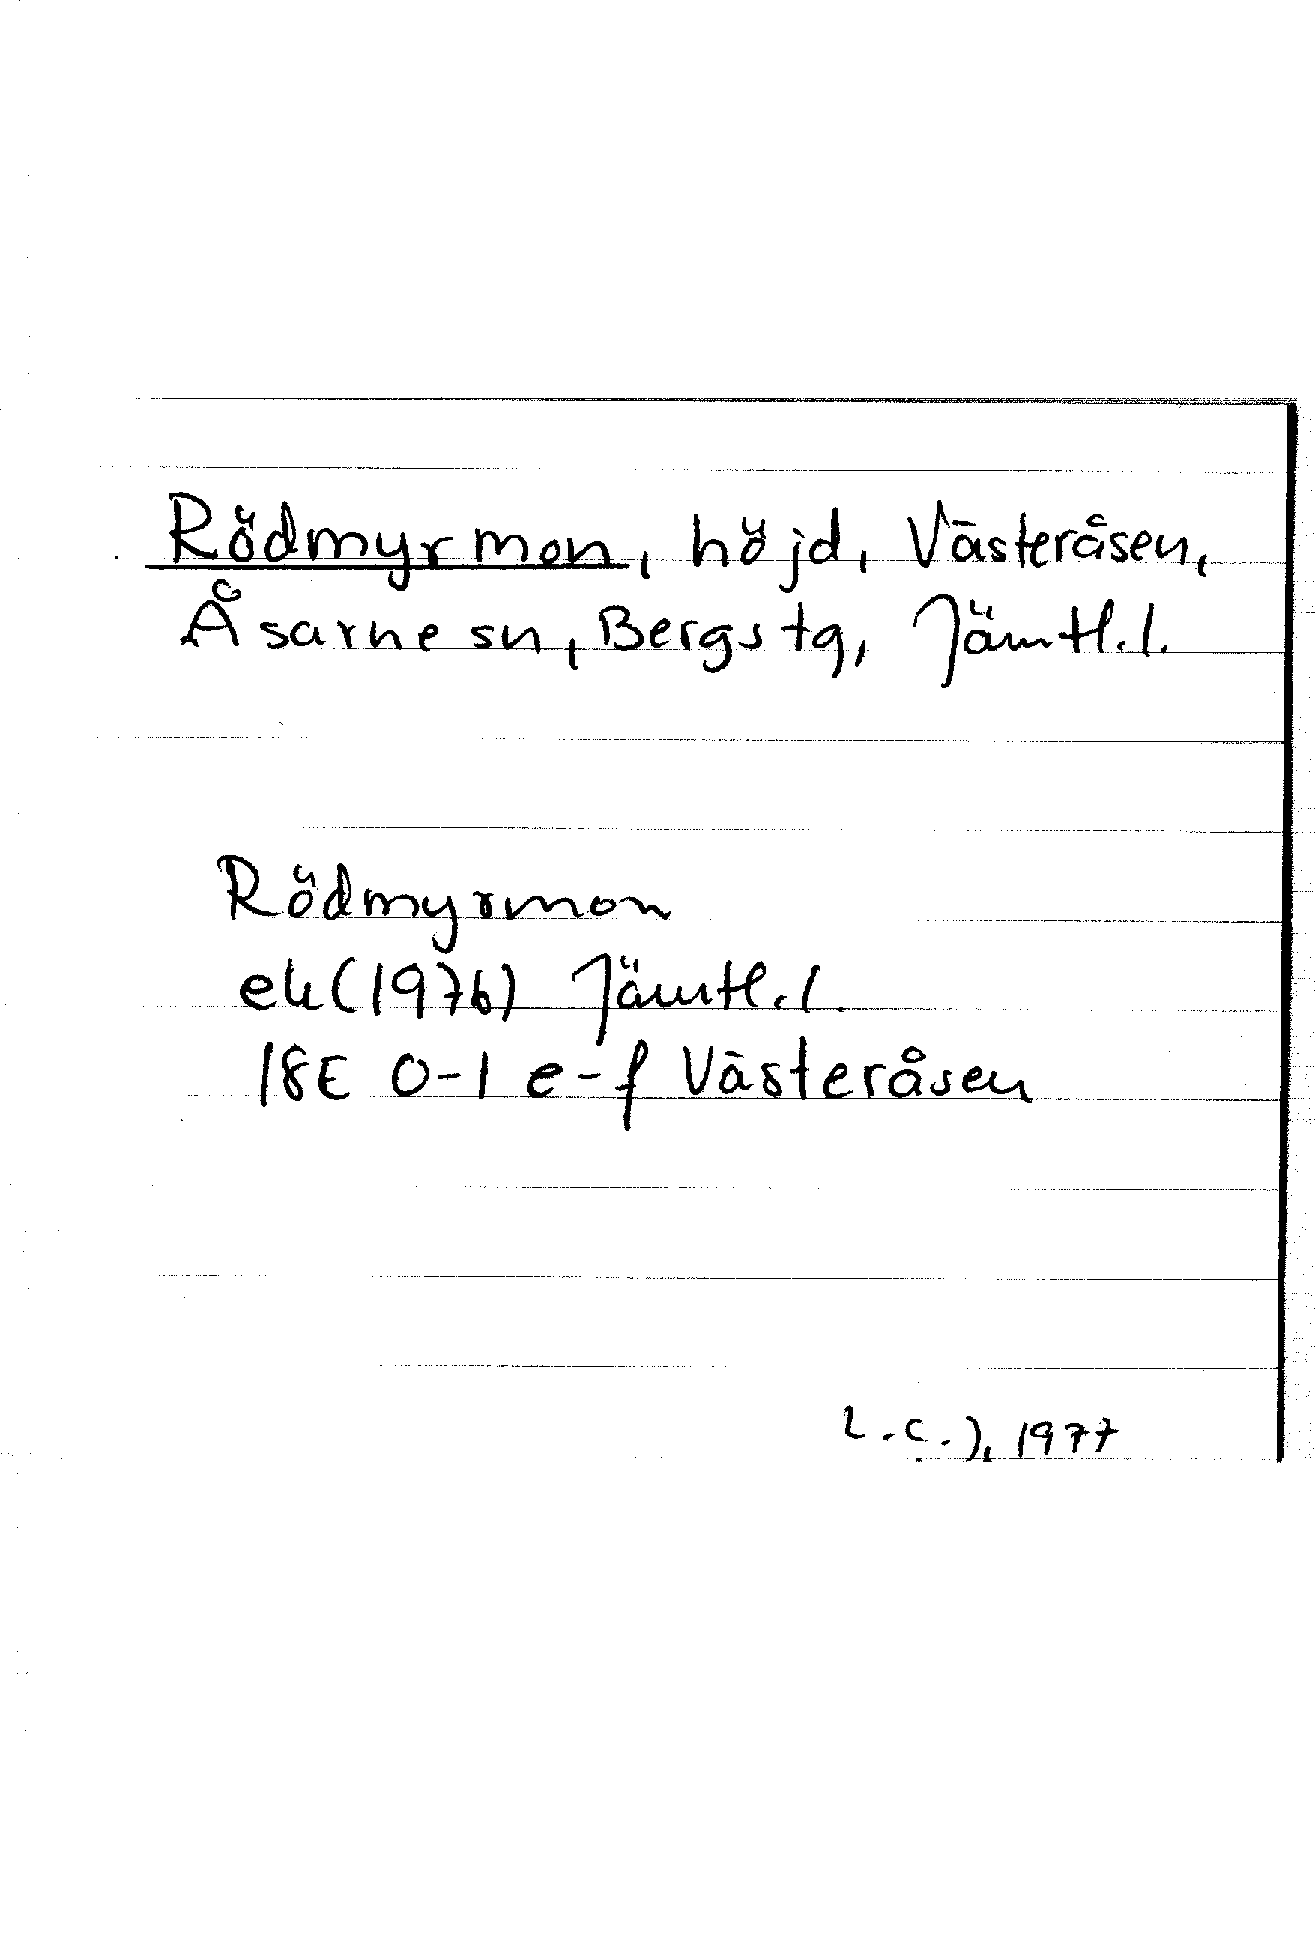 Rödmyrmon, höjd, Västeråsen,
Åsarne sn, Bergs tg, Jämtl. l.
Rödmyrmon
ek (1976) Jämtl. l.
18E 0-1 e-f Västeråsen
L.C.J, 1977